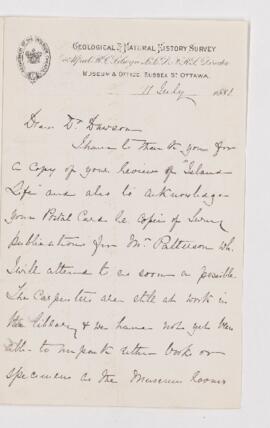 GEOLOGICAL & NATURAL HISTORY SURVEY
Alfred R. C. Selwyn LL.D. F.R.S. Director
MUSEUM & OFFICE, SUSSEX ST. OTTAWA.
11 July 1881
Dear Dr. Dawson
I have to thank you for
a copy of your Review of "Island
Life" and also to acknowledge
your Postal Card be copies of Survey
publications for Mr. Patterson wh.
I will attend to as soon as possible
The Carpenters are still at work in
the library & we have not yet been
able to unpack either books or
specimens as the Museum rooms